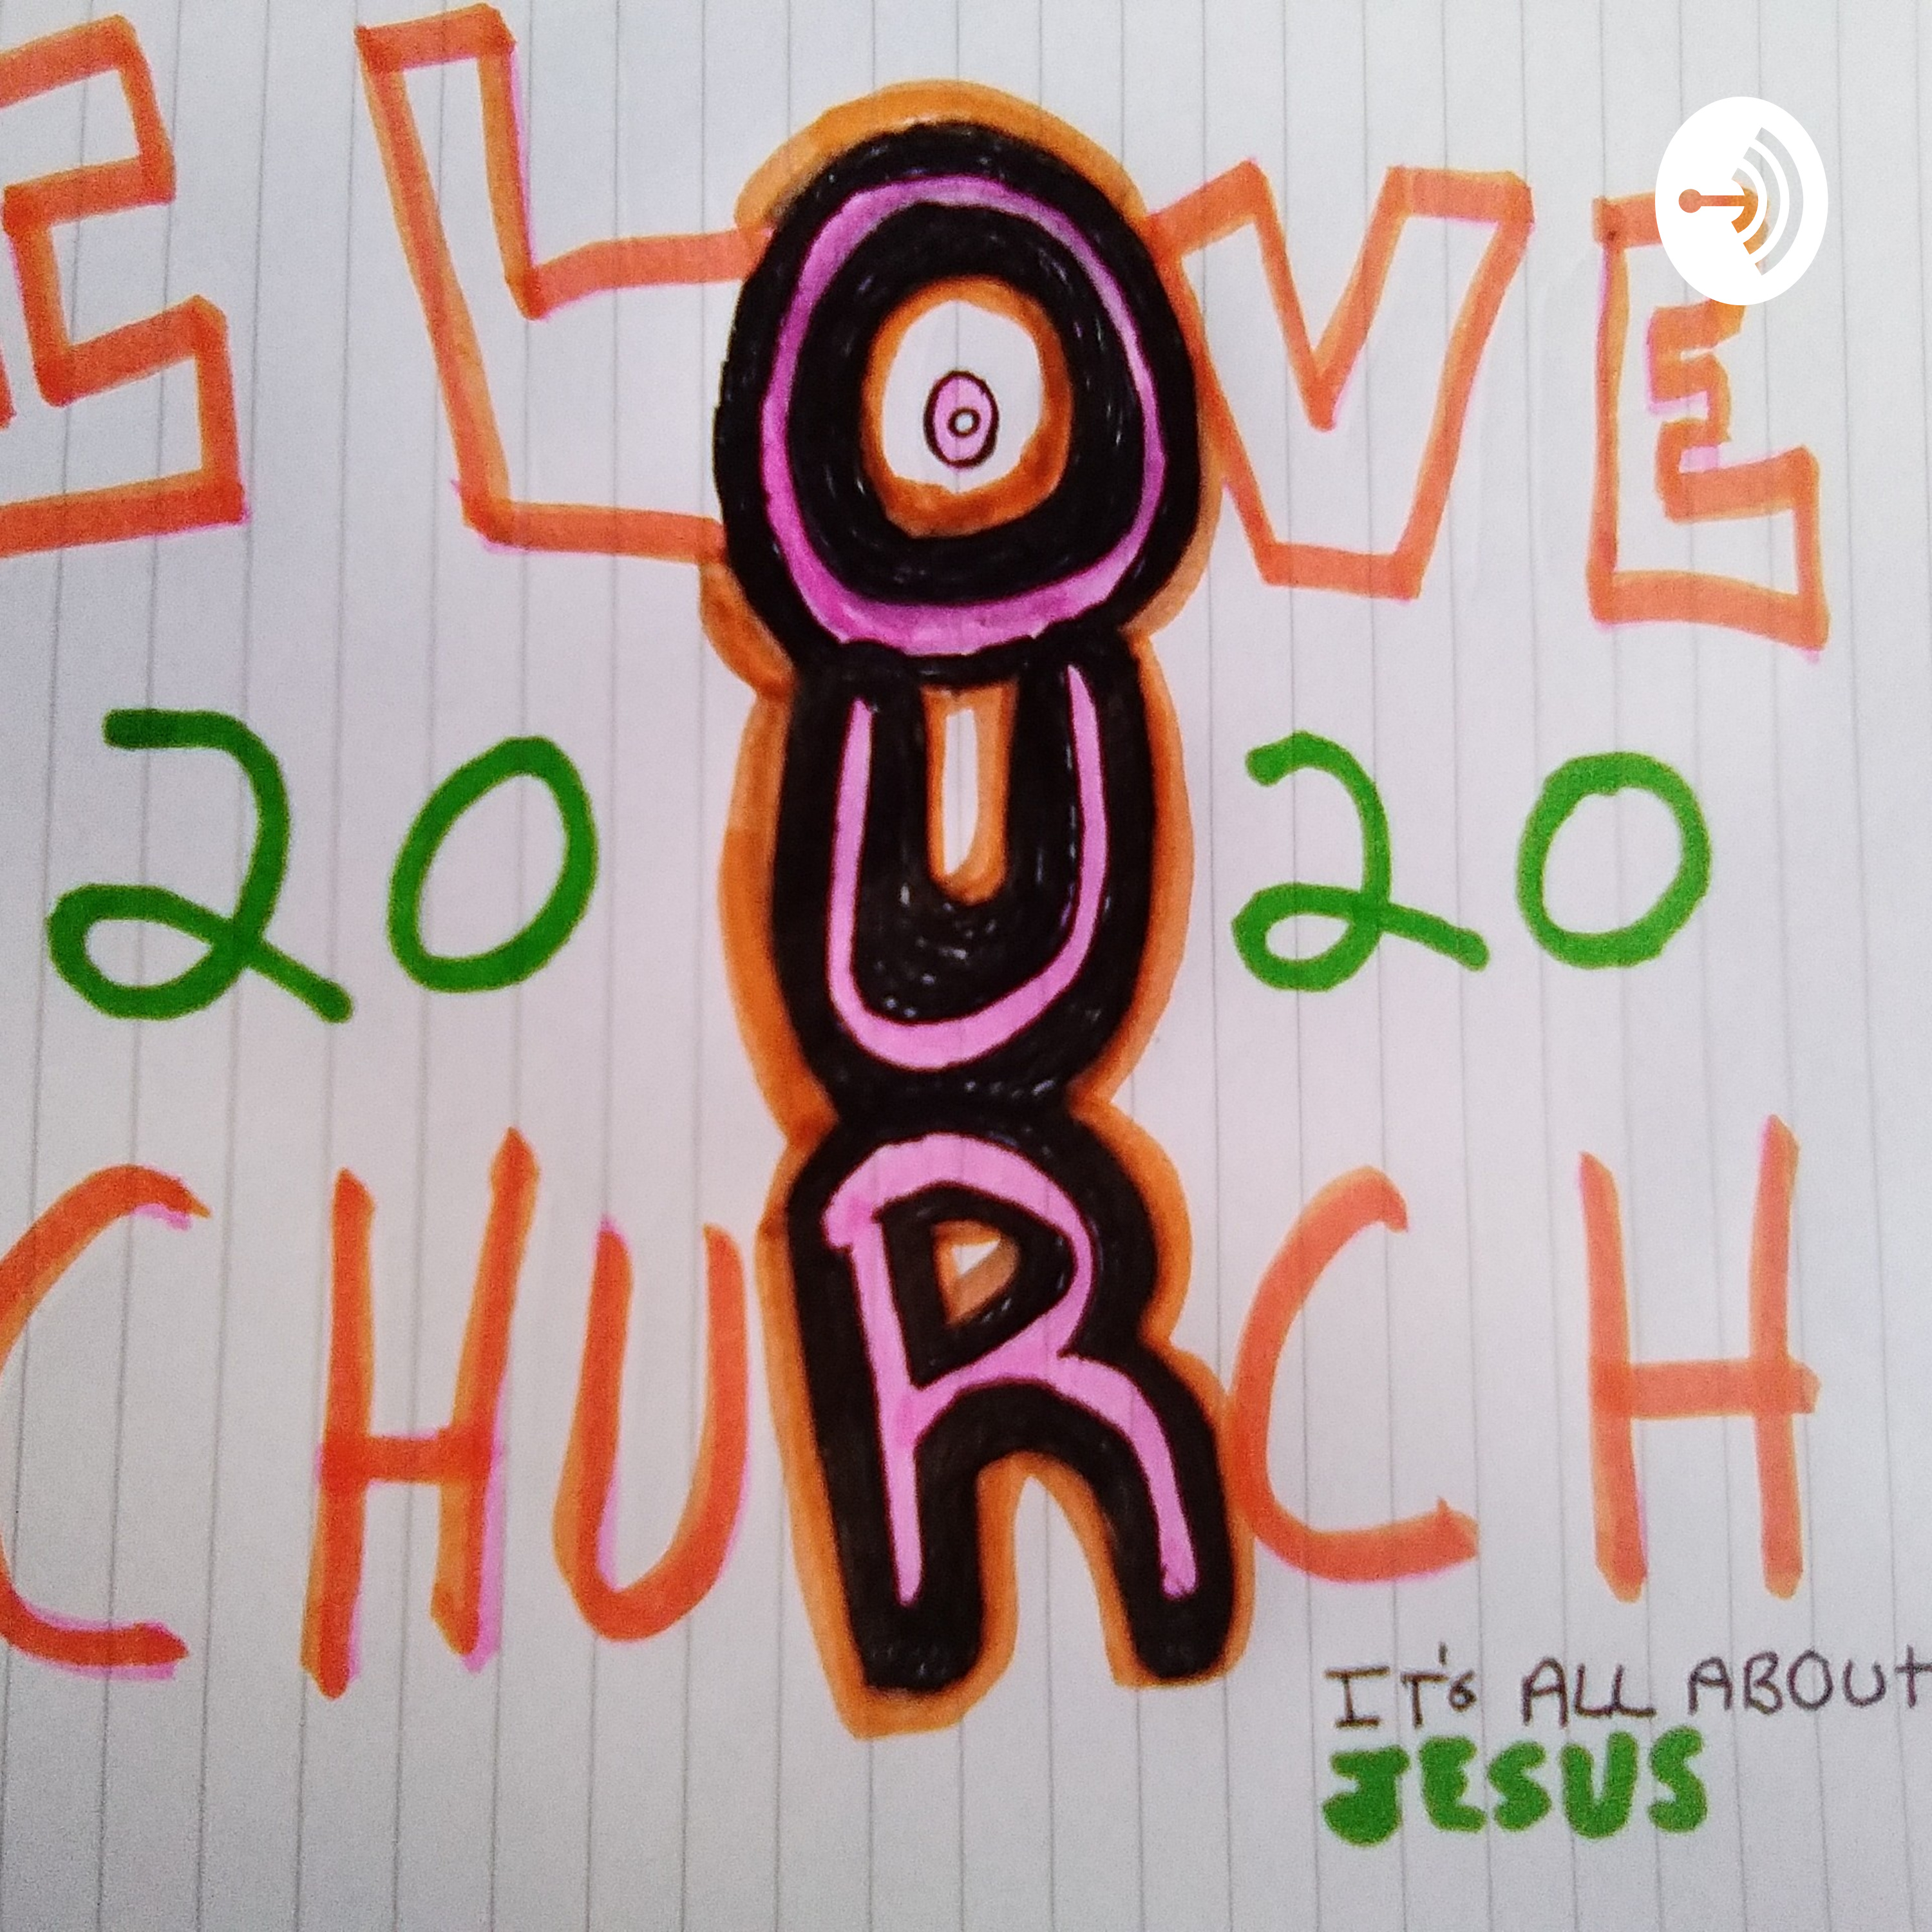 E LOVE
20 U 20
CHURCH
IT's ALL ABOUT
JESUS